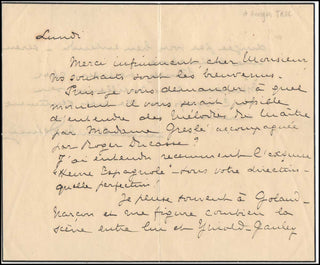 Lundi
Merci infiniment cher Monsieur
vos souhaits sont les bienvenus.
Puis-je vous demander à quel
moment il vous serait possible
d'entendre des Mélodies du Maître
par Madame Greslé accompagnée
par Roger Ducasse ?
J'ai entendu recemment l'exquise
"Heure Espagnole" sous votre direction
quelle perfection !
Je pense souvent à Golaud
Marcon et me figure combien la
scène entre lui et Yniold-Gauley